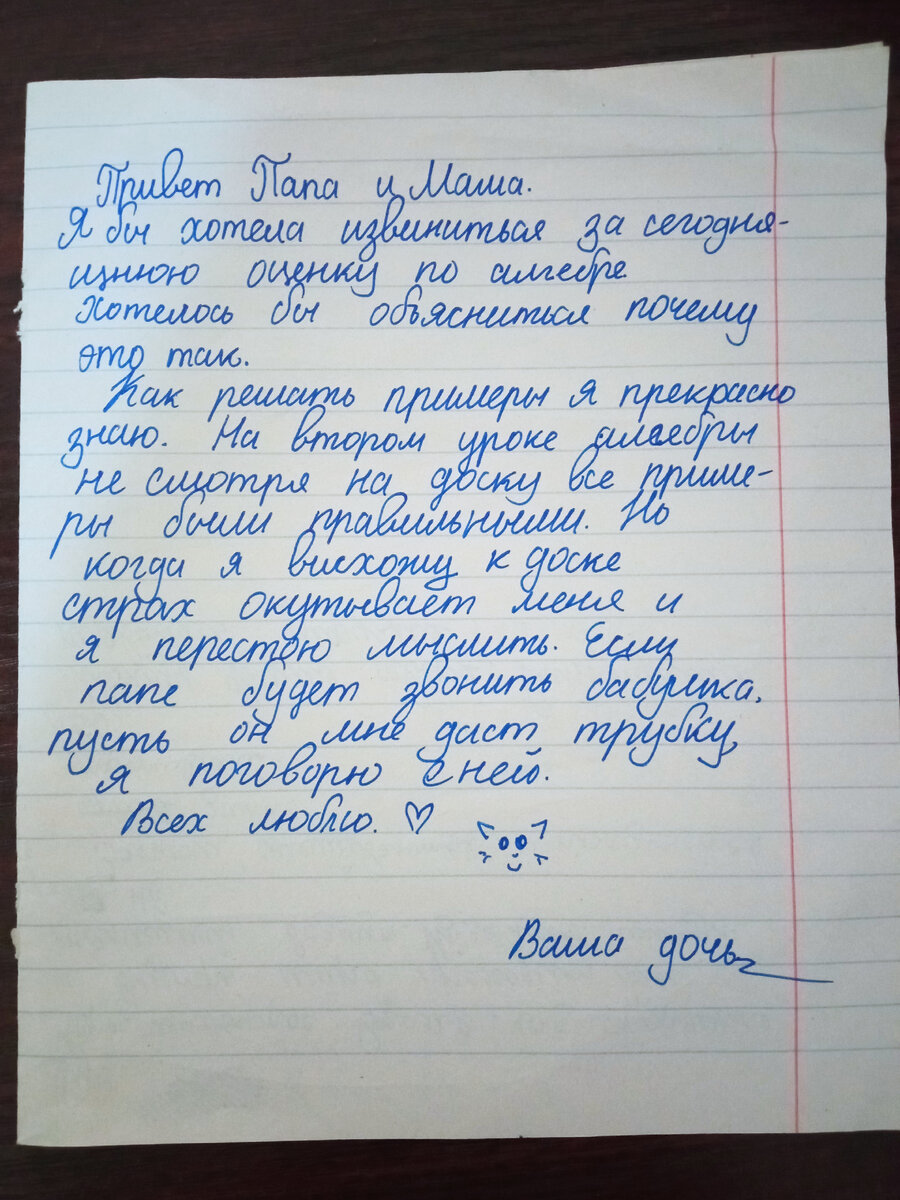 Привет Папа и Мама.
Я бы хотела извиниться за сегодня-
шнюю оценку по алгебре
Хотелось бы объясниться почему
это так.
Как решать примеры я прекрасно
знаю. На втором уроке алгебры
не смотря на доску все приме-
ры были правильными. Но
когда я высхожу к доске
страх окутывает меня и
я перестою мыслить. Если
папе будет звонить бабушка,
пусть он мне даст трубку,
я поговорю с ней.
Всех люблю. ♡
Ваша дочь